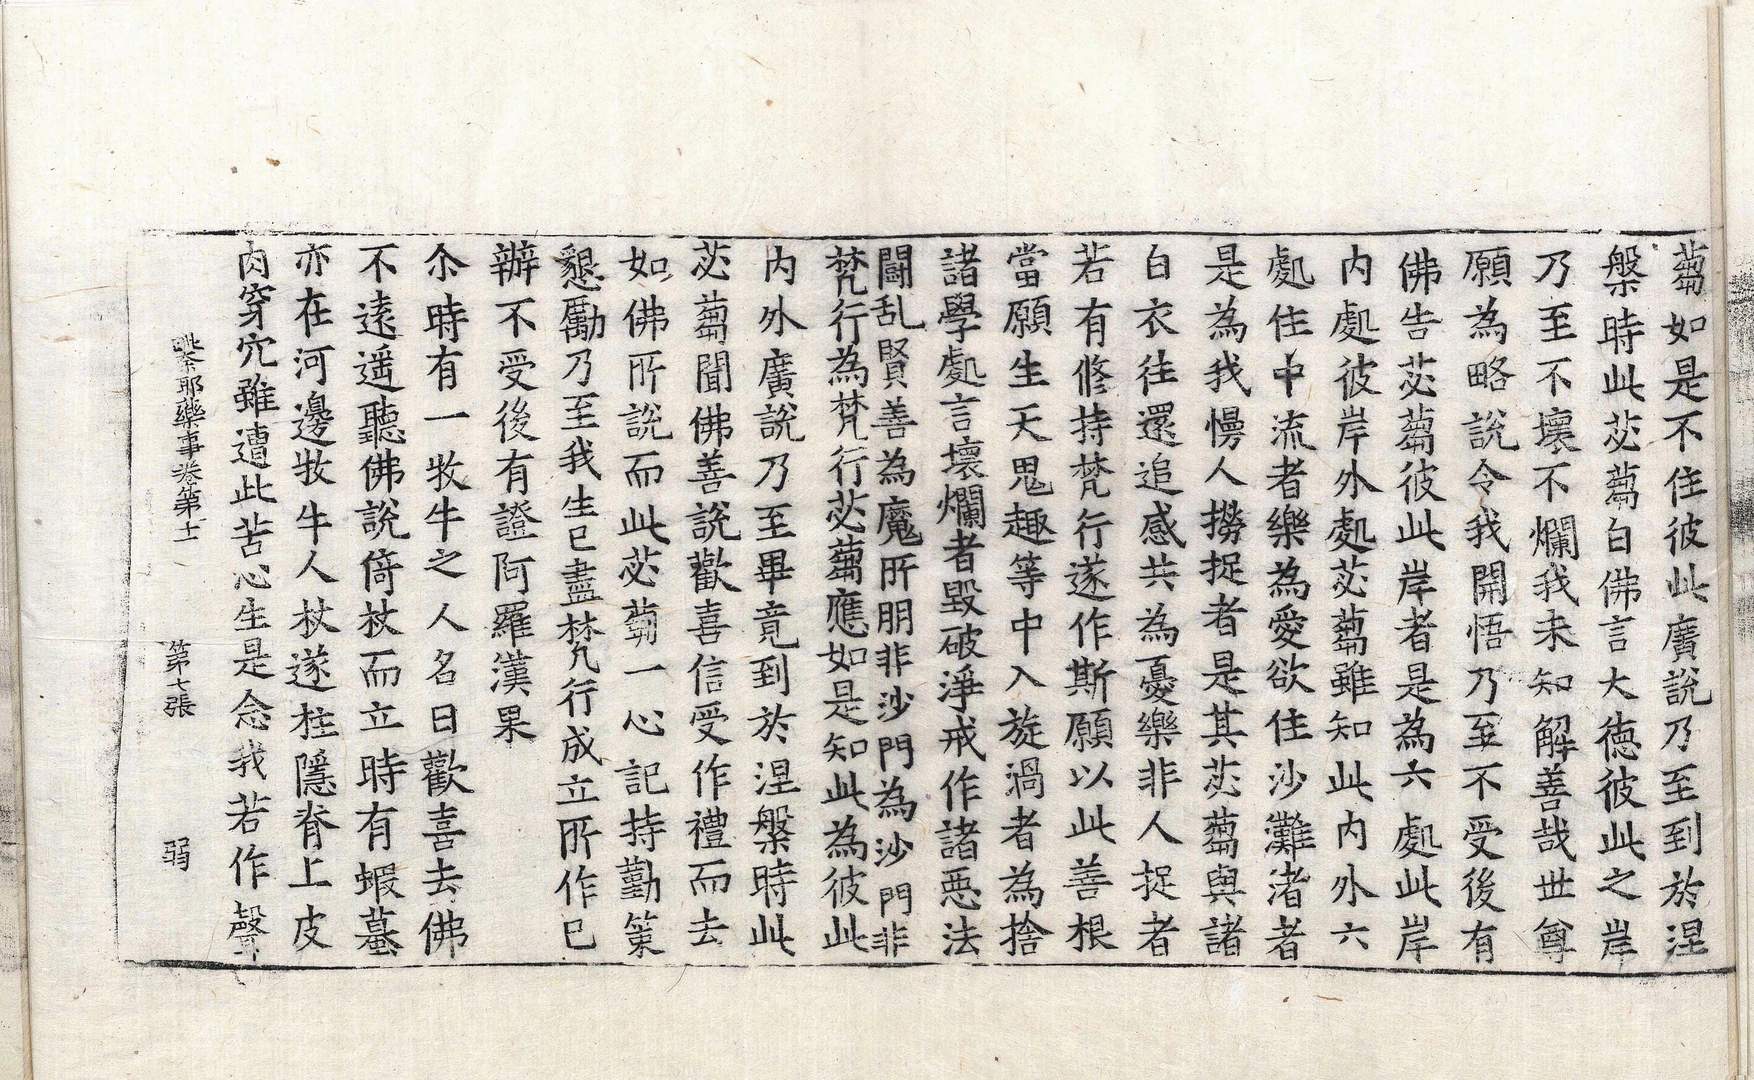 蒭如是不住彼此廣說乃至到於涅
槃時此苾蒭白佛言大德彼此之岸
乃至不壞不爛我未知解善哉世尊
願為略說令我開悟乃至不受後有
佛告苾蒭彼此岸者是為六處此岸
內處彼岸外處苾蒭雖知此內外六
處住中流者樂為愛欲住沙灘渚者
是為我慢人撈捉者是其苾蒭與諸
白衣往還追感共為憂樂非人捉者
若有修持梵行遂作斯願以此善根
當願生天思趣等中入旋渦者為捨
諸學處言壞爛者毀破淨戒作諸惡法
鬪乱賢善為魔所朋非沙門為沙門非
梵行為梵行苾蒭應如是知此為彼此
內外廣說乃至畢竟到於涅槃時此
苾蒭聞佛善說歡喜信受作禮而去
如佛所說而此苾蒭一心記持勤策
懇勵乃至我生已盡梵行成立所作已
辦不受後有證阿羅漢果
尒時有一牧牛之人名曰歡喜去佛
不遠遥聽佛說倚杖而立時有蝦蟇
亦在河邊牧牛人杖遂柱隱脊上皮
肉穿穴雖遭此苦心生是念我若作聲
毗奈耶藥事卷第十一 第七張 弱